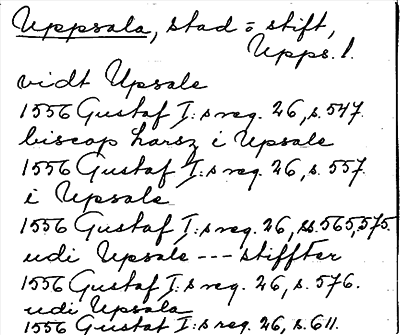 Uppsala, stad o stift,
Upps. l.
vidt Upsale
1556 Gustaf I:s reg. 26, s. 547.
biscop harsz i Upsale
1556 Gustaf I:s reg. 26, s. 557.
i Upsale
1556 Gustaf I:s reg. 26, ss. 565, 575.
udi Upsale --- stiffter
1556 Gustaf I:s reg. 26, s. 576.
udi Upsala
1556 Gustaf I:s reg. 26, s. 611.